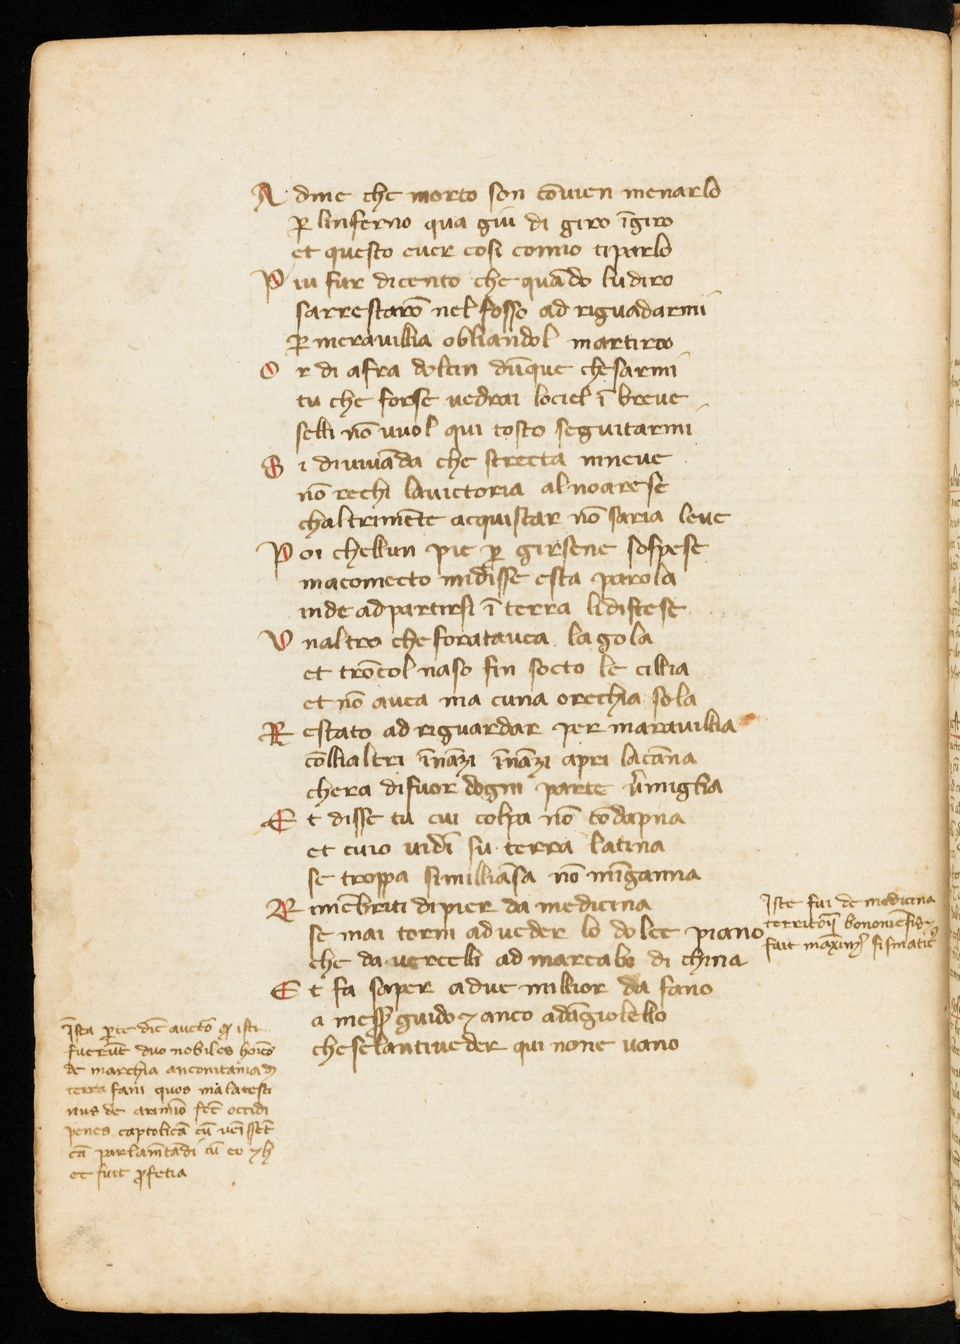 A dme che morto son cōvien menarlo
ꝑ linferno qua giu di giro īgiro
et questo euer cosi comio tiparlo
P iu fur dicento che quādo ludiro
sarrestarō nel fosso ad riguadarmi
ꝑ merauillia obliandol martiro
O r di afra dolcin dūque chesarmi
tu che forse uedrai lociel ī breue
selli nō vuol qui tosto seguitarmi
S i diuiuāda che strecta nineue
nō rechi lauictoria alnoarese
chaltrimēte acquistar nō saria leue
P oi chellun pie ꝑ girsene sospese
macomecto midisse esta parola
inde adpartirsi ī terra lidistese
V naltro che foratauea lagola
et trōcol naso fin socto le cillia
et nō auea ma cuna orechia sola
R estato ad riguardar per marauillia
cōllialtri īnāzi īnāzi apri lacāna
chera difuor dogni parte v̄miglia
E t disse tu cui colpa nō cōdāpna
et cuio uidī su terra latina
se troppa similliāsa nō mīganna
R imēbriti dipier da medicina
se mai torni adueder lo dolce piano
che da uercelli ad marcabo di china
E t fa saper adue millior da fano
a mesꝭ guido ⁊ anco adāgiolello
cheselantiueder qui none uano
Iste fui de medicina
territorij bononiēsis ⁊
fuit maximꝰ sismaticꝰ
Īsta ꝑte dic̄ auctō ꝙ isti
fuerūt duo nobiles hoīes
de marchia anconitana d
terra fani quos malatesti
nus de arimīo fec̄ occidi
penes captolicā cū uēissēt
cā parlamētādi cū eo ⁊ h
et fuit ꝓfetia